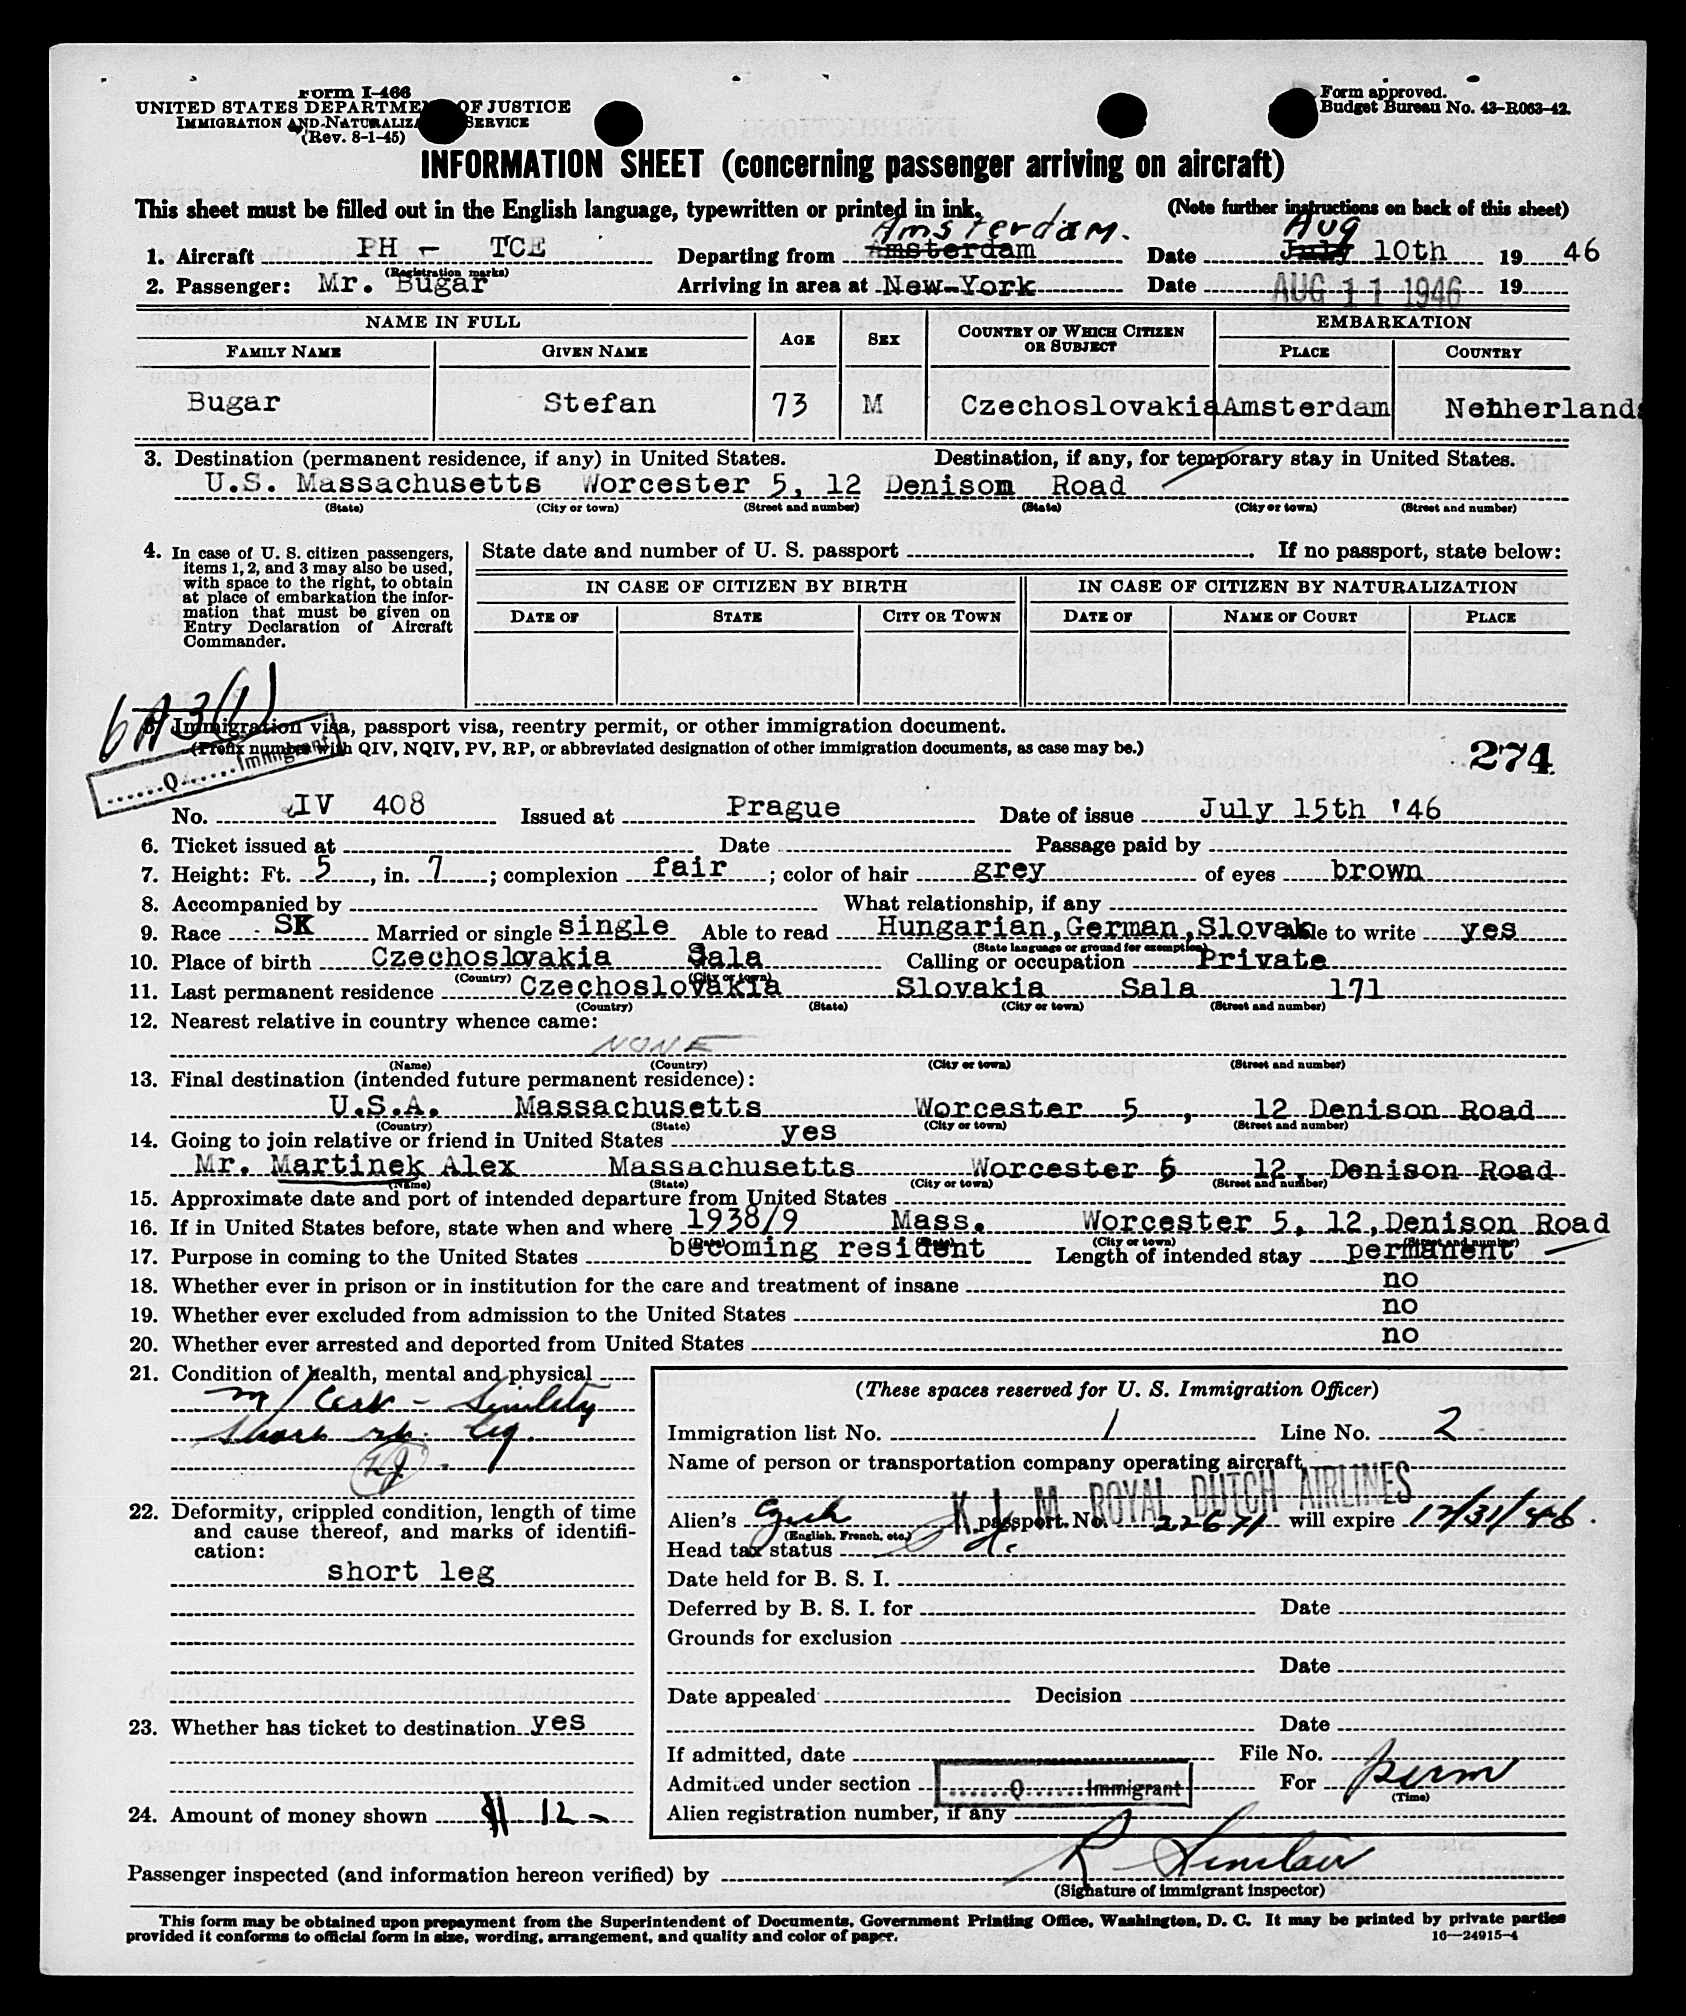 Form I-466
UNITED STATES DEPARTMENT OF JUSTICE
IMMIGRATION AND NATURALIZATION SERVICE
(Rev. 8-1-45)
Form approved.
Budget Bureau No. 43-R063-42.
INFORMATION SHEET (concerning passenger arriving on aircraft)
This sheet must be filled out in the English language, typewritten or printed in ink.
(Note further instructions on back of this sheet)
Amsterdam. Aug
1. Aircraft PH - TCE Departing from Amsterdam Date July 10th 19 46
(Registration marks)
2. Passenger: Mr. Bugar Arriving in area at New-York Date AUG 11 1946 19
NAME IN FULL AGE SEX COUNTRY OF WHICH CITIZEN OR SUBJECT EMBARKATION
FAMILY NAME GIVEN NAME PLACE COUNTRY
Bugar Stefan 73 M Czechoslovakia Amsterdam Netherlands
3. Destination (permanent residence, if any) in United States. Destination, if any, for temporary stay in United States.
U.S. Massachusetts Worcester 5, 12 Denison Road
(State) (City or town) (Street and number) (State) (City or town) (Street and number)
4. In case of U. S. citizen passengers, items 1, 2, and 3 may also be used, with space to the right, to obtain at place of embarkation the information that must be given on Entry Declaration of Aircraft Commander.
State date and number of U. S. passport . If no passport, state below:
IN CASE OF CITIZEN BY BIRTH IN CASE OF CITIZEN BY NATURALIZATION
DATE OF STATE CITY OR TOWN DATE OF NAME OF COURT PLACE
6A3(1)
5. Immigration visa, passport visa, reentry permit, or other immigration document.
(Prefix number with QIV, NQIV, PV, RP, or abbreviated designation of other immigration documents, as case may be.)
274
Q Immigrant
No. QIV 408 Issued at Prague Date of issue July 15th '46
6. Ticket issued at Date Passage paid by
7. Height: Ft. 5, in. 7; complexion fair; color of hair grey of eyes brown
8. Accompanied by What relationship, if any
9. Race SK Married or single single Able to read Hungarian,German,Slovak Able to write yes
(State language or ground for exemption)
10. Place of birth Czechoslovakia Sala Calling or occupation Private
(Country) (City or town)
11. Last permanent residence Czechoslovakia Slovakia Sala 171
(Country) (State) (City or town) (Street and number)
12. Nearest relative in country whence came:
NONE
(Name) (Country) (City or town) (Street and number)
13. Final destination (intended future permanent residence):
U.S.A. Massachusetts Worcester 5 , 12 Denison Road
(Country) (State) (City or town) (Street and number)
14. Going to join relative or friend in United States yes
Mr. Martinek Alex Massachusetts Worcester 5 12, Denison Road
(Name) (State) (City or town) (Street and number)
15. Approximate date and port of intended departure from United States
16. If in United States before, state when and where 1938/9 Mass. Worcester 5, 12,Denison Road
(Date) (State) (City or town) (Street and number)
17. Purpose in coming to the United States becoming resident Length of intended stay permanent
18. Whether ever in prison or in institution for the care and treatment of insane no
19. Whether ever excluded from admission to the United States no
20. Whether ever arrested and deported from United States no
21. Condition of health, mental and physical
m/ Cert - Senility
short rt. leg.
22. Deformity, crippled condition, length of time and cause thereof, and marks of identification:
short leg
23. Whether has ticket to destination yes
24. Amount of money shown $ 12
(These spaces reserved for U. S. Immigration Officer)
Immigration list No. 1 Line No. 2
Name of person or transportation company operating aircraft
K. L. M. ROYAL DUTCH AIRLINES
Alien's Czech passport No. 22671 will expire 12/31/46.
(English, French, etc.)
Head tax status
Date held for B. S. I.
Deferred by B. S. I. for Date
Grounds for exclusion
Date
Date appealed Decision
Date
If admitted, date File No.
Admitted under section Q Immigrant For perm
(Time)
Alien registration number, if any
Passenger inspected (and information hereon verified) by R Sinclair
(Signature of immigrant inspector)
This form may be obtained upon prepayment from the Superintendent of Documents, Government Printing Office, Washington, D. C. It may be printed by private parties
provided it conforms to official form in size, wording, arrangement, and quality and color of paper.
16—24915-4